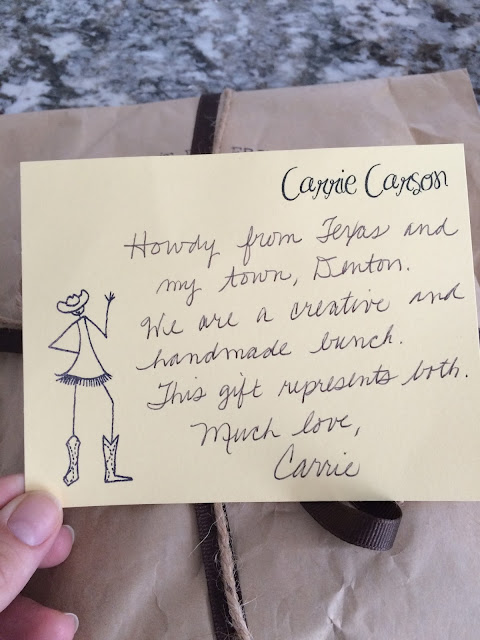 Carrie Carson
Howdy from Texas and
my town, Denton.
We are a creative and
handmade bunch.
This gift represents both.
Much love,
Carrie